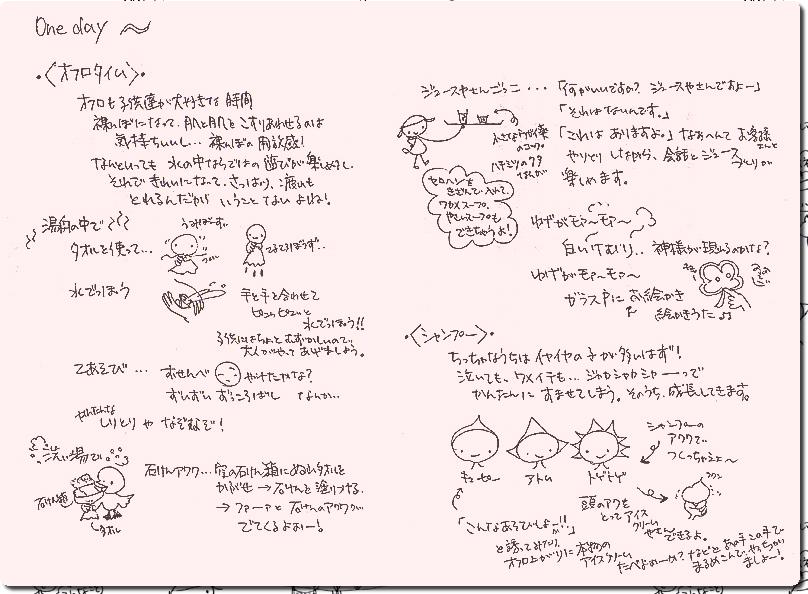 One day 〜
・〈オフロタイム〉・
オフロも子供達が大好きな時間
裸んぼになって、肌と肌をこすりあわせるのは
気持ちいいし… 裸んぼの開放感!
なんといっても 水の中ならではの遊びが楽しめるし
それできれいになって、さっぱり、疲れも
とれるんだから いうことないよね!
湯舟の中で
タオルを使って…
うみぼうず…
てるてるぼうず…
水でっぽう
手と手を合わせて
ピュッピュッと
水でっぽう!!
子供にはちょとむずかしいので、
大人がやってあげましょう。
てあそび… おせんべ やけたかな?
ずいずい ずっころばし なんか…
かんたんな
しりとり や なぞなぞ!
洗い場で
石けん箱
タオル
石けんアワアワ… 空の石けん箱にぬれタオルを
かぶせ → 石けんを塗りつける。
→ ファーッと 石けんのアワアワが
でてくるよおー!
ジュースやさんごっこ・・・「何がいいですか? ジュースやさんですよー」
「それはないんです。」
「これは ありますよ。」なぁんて お客様と
やりとりしながら、会話とジュース
づくりが
楽しめます。
小さなカップや
ハチミツのフタ
なんかが
セロハンを
きざんで、入れて
ワカメスープ、
やさいスープも
できちゃうよ!
ゆげがモァ〜モァ〜
白いけむり.. 神様が現れるのかな?
ゆげがモァ〜モァ〜
ガラス戸に お絵かき
絵かきうた♪♪
〈シャンプー〉・
ちっちゃなうちは イヤイヤの子が多いはず!
泣いても、ワメイテも… ジャカジャカジャーーって
かんたんに すませてしまう。そのうち、成長してきます。
キューピー
アトム
トゲトゲ
シャンプーの
アワアワで、
つくっちゃえよ〜
「こんなあそびしよー!!」
と誘ってみたり、
オフロ上がりに 本物の
アイスクリーム
たべよぉーか? などと あの手この手で
まるめこんで、やっちゃい
ましょー!
頭のアワを
とって アイス
クリーム
やさん できるよ。